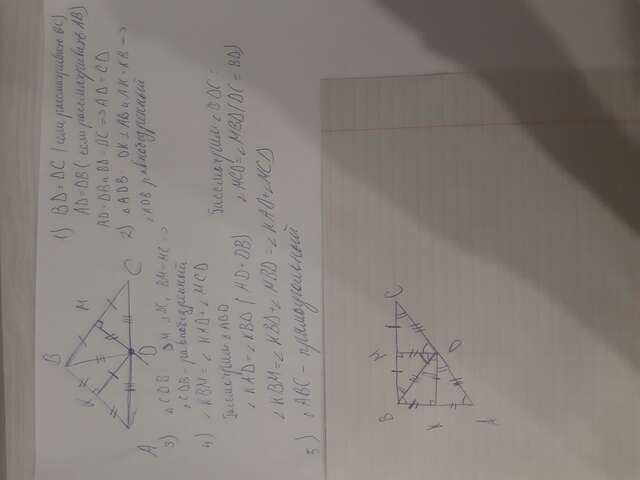 1) BD = DC (если рассматривать BC)
AD = DB (если рассматривать AB)
AD = DB и BD = DC => AD = CD
2) △ADB DK ⊥ AB и AK = KB =>
△ADB равнобедренный
B
K
M
C
D
A
3) △CDB DM ⊥ BC, BM = MC =>
△CDB - равнобедренный
4) ∠KBM = ∠KAD + ∠MCD
Рассмотрим △ABD
∠KAD = ∠KBD (AD = DB)
Рассмотрим △BDC:
∠MCD = ∠MBD (DC = BD)
∠KBM = ∠KBD + ∠MBD = ∠KAD + ∠MCD
5) △ABC - прямоугольный
C
M
D
B
K
A